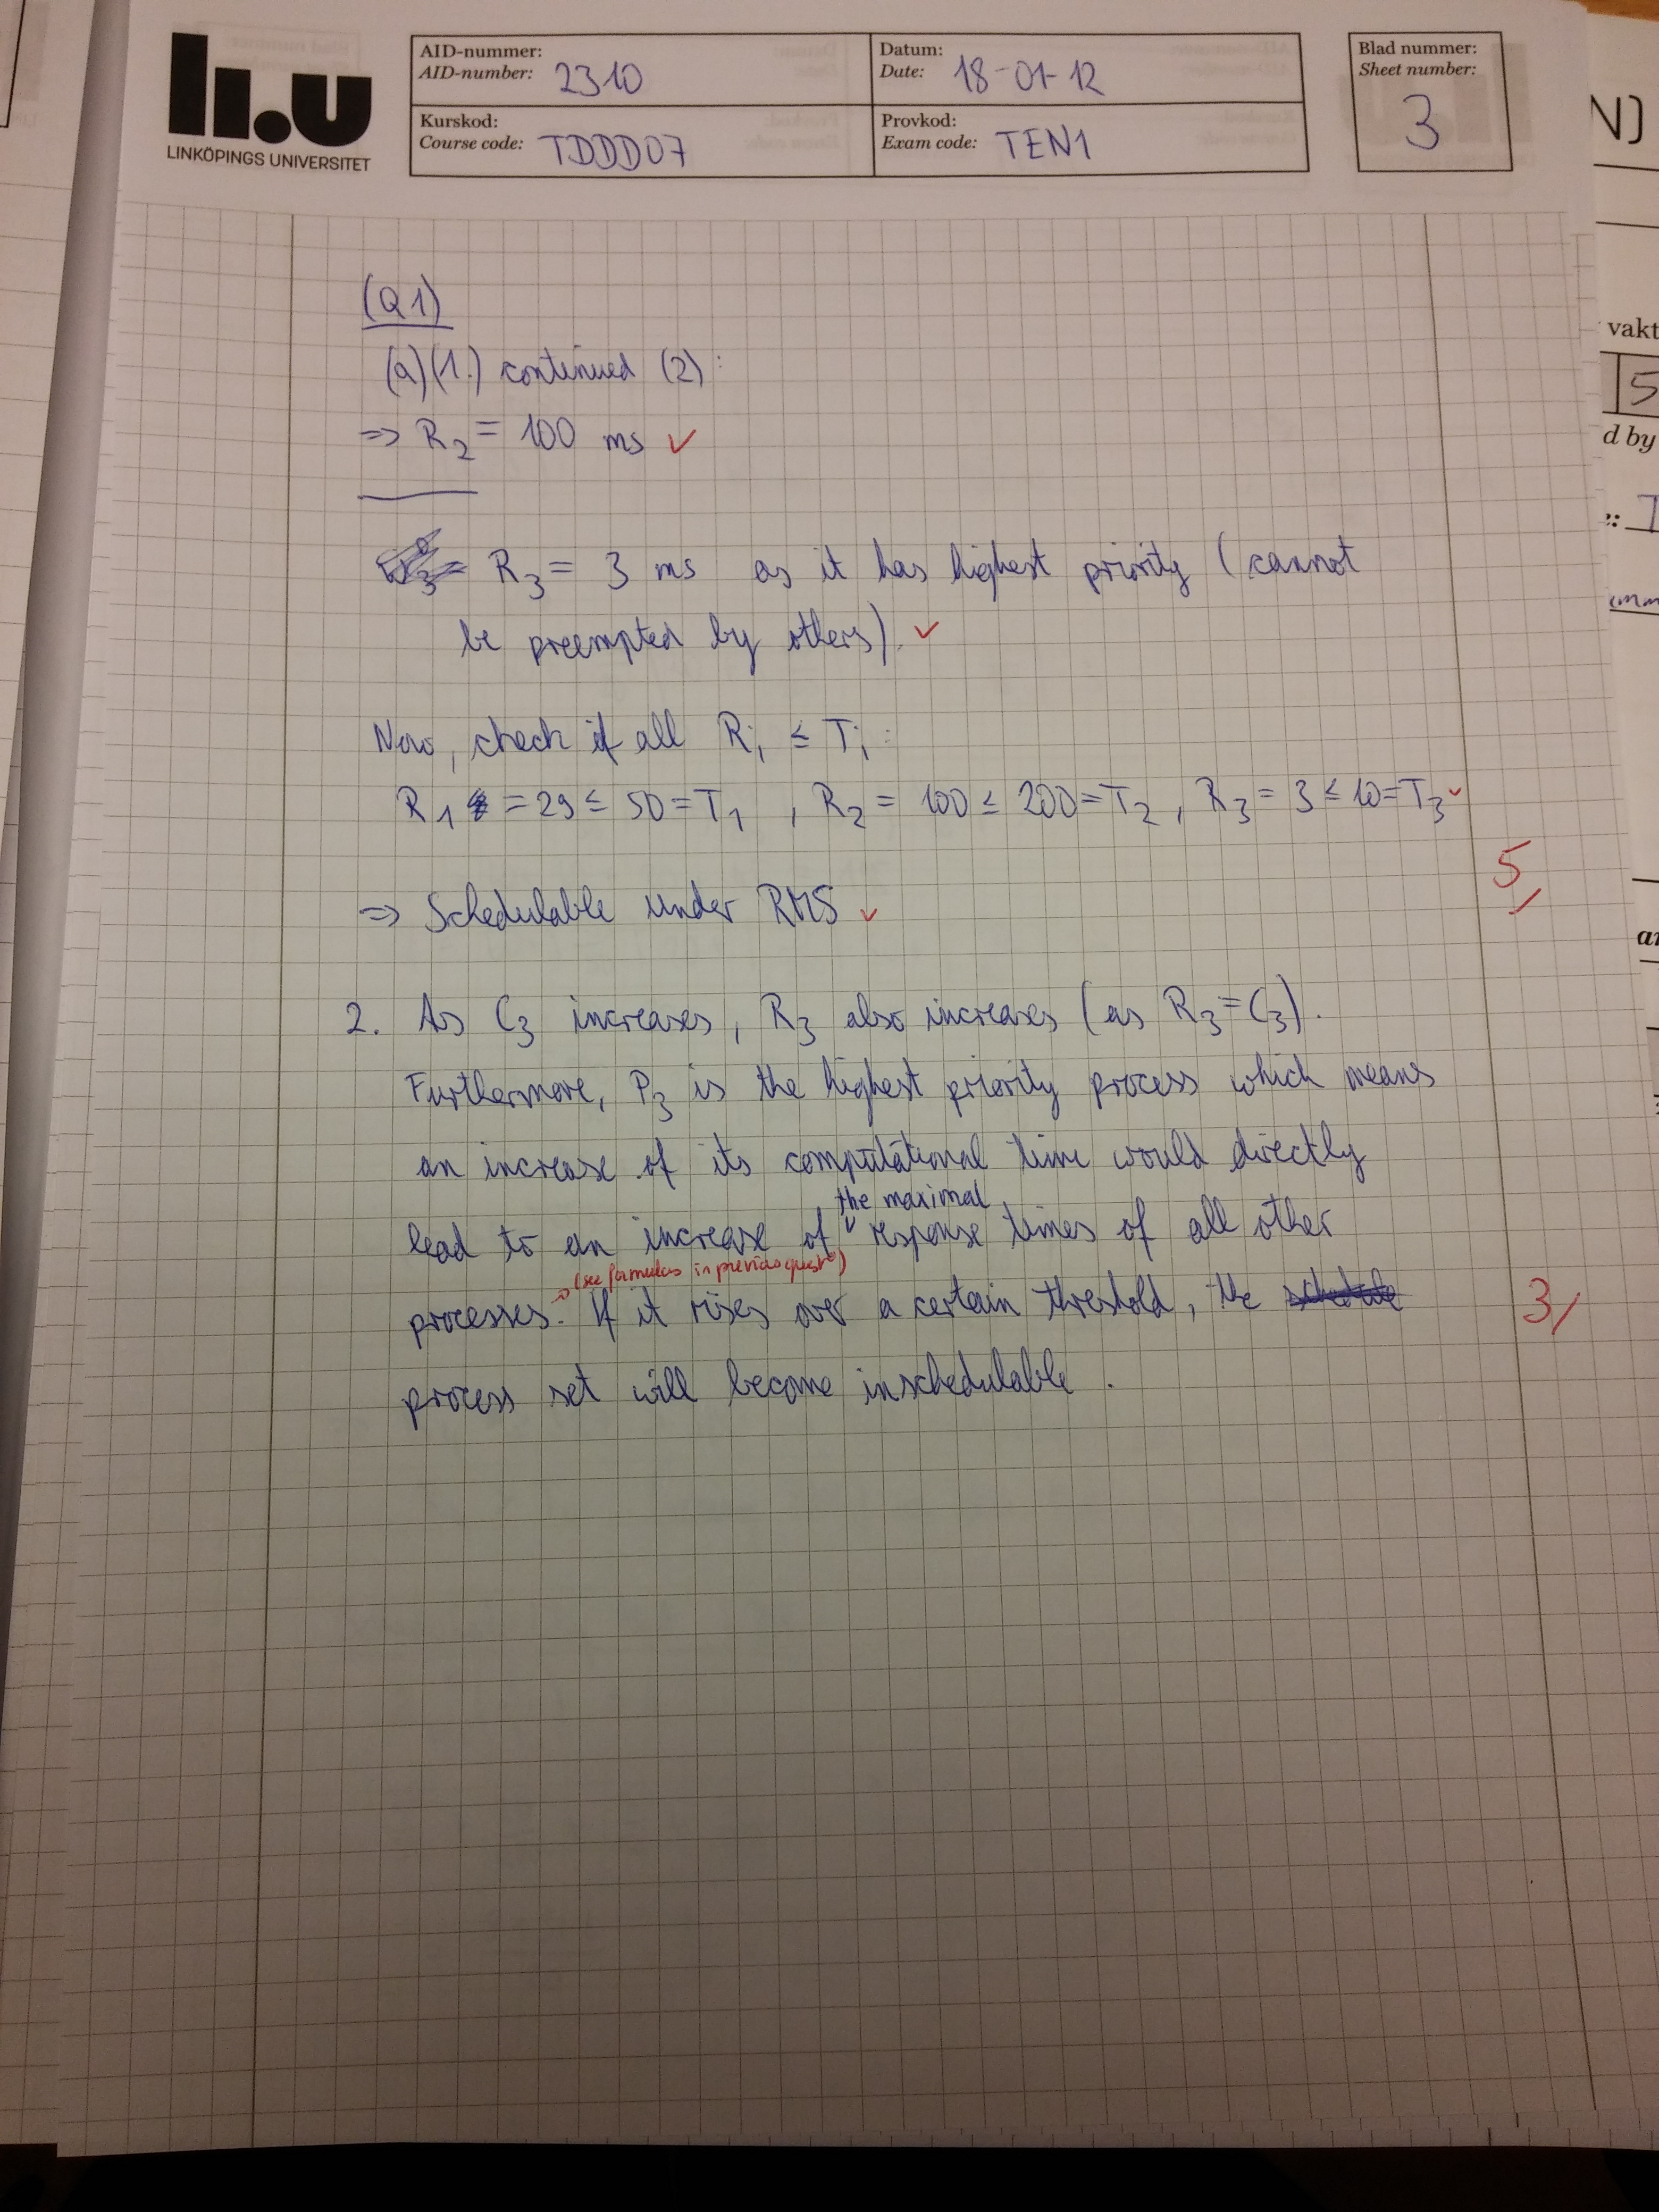 li.u
LINKÖPINGS UNIVERSITET
AID-nummer:
AID-number: 2310
Datum:
Date: 18-01-12
Blad nummer:
Sheet number:
3
Kurskod:
Course code: TDDD07
Provkod:
Exam code: TEN1
N)
vakt
5
d by
(Q1)
(a)(1.) continued (2):
=> R2 = 100 ms ✓
R3 = 3 ms as it has highest priority (cannot
be preempted by others). ✓
Now, check if all Ri ≤ Ti:
R1 = 29 ≤ 50 = T1 , R2 = 100 ≤ 200 = T2 , R3 = 3 ≤ 10 = T3 ✓
5/
=> Schedulable under RMS ✓
2. As C3 increases, R3 also increases (as R3 = C3).
Furthermore, P3 is the highest priority process which means
an increase of its computational time would directly
the maximal
lead to an increase of response times of all other
(see formulas in previous quest°)
processes. If it rises over a certain threshold, the
3/
process set will become inschedulable.